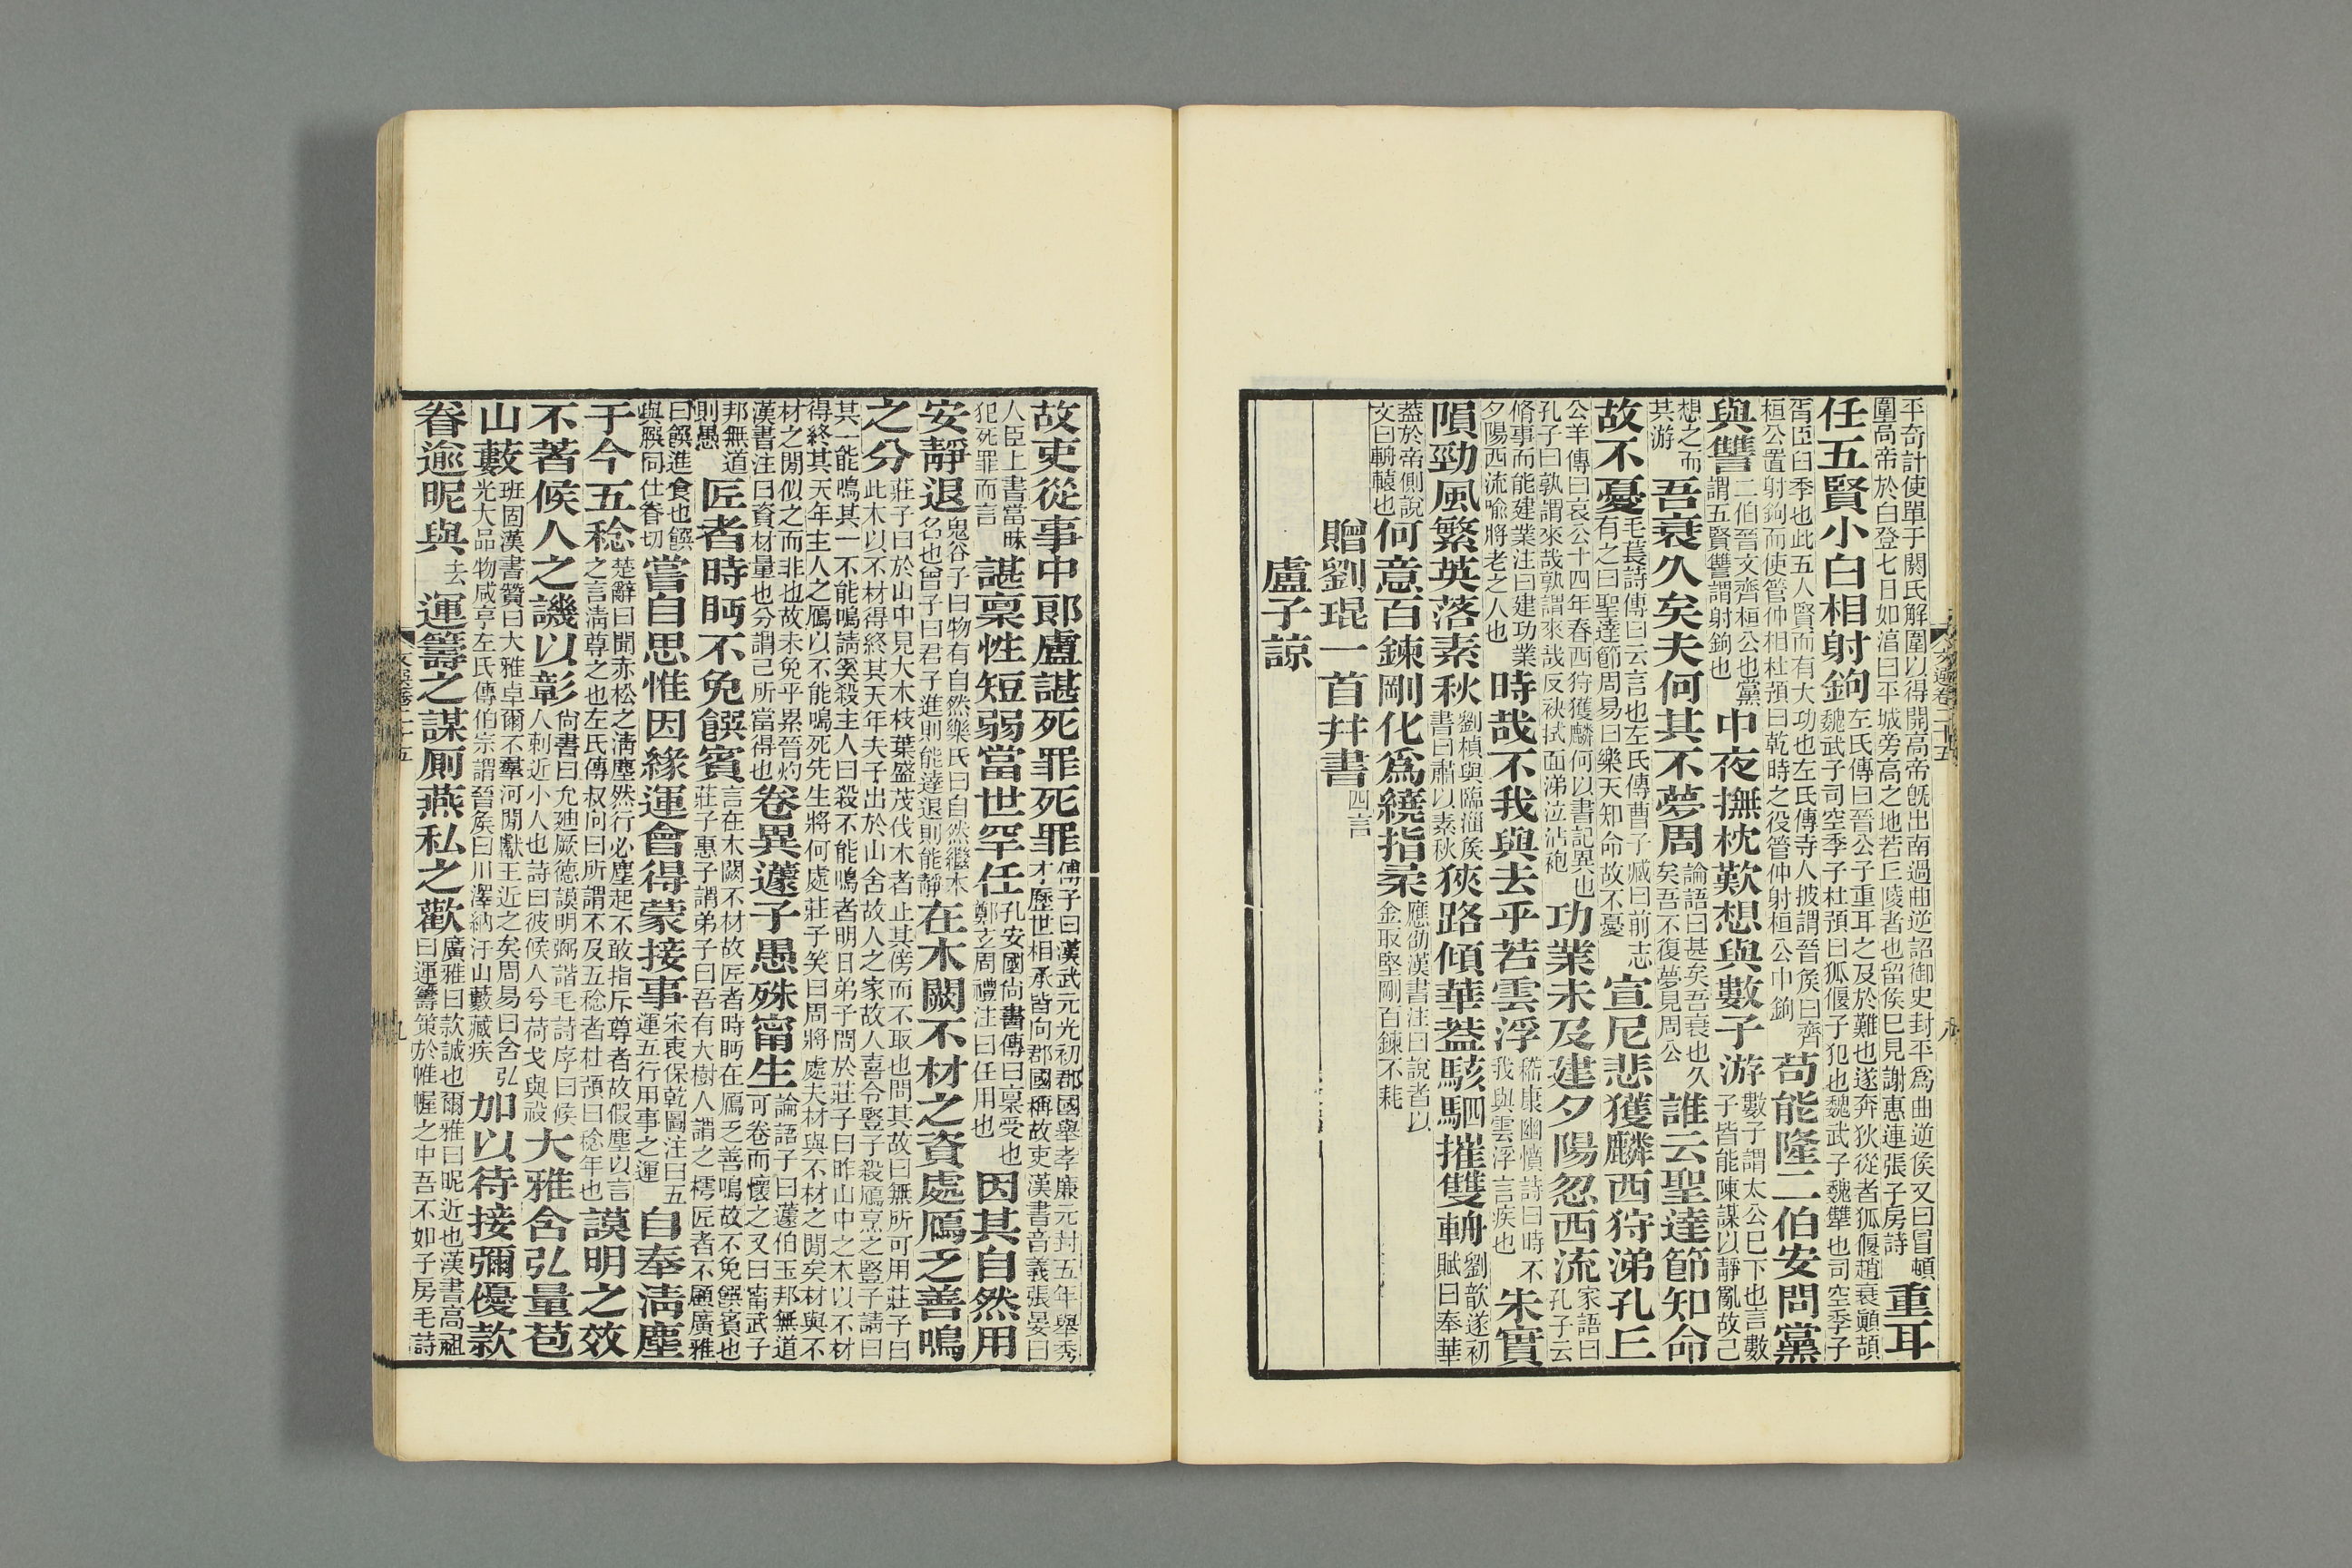 平奇計使單于閼氏解圍以得開高帝旣出南過曲逆詔御史封平爲曲逆侯又曰冒頓
圍高帝於白登七日如湻曰平城旁高之地若丘陵者也留侯巳見謝惠連張子房詩
重耳
任五賢小白相射鉤
左氏傳曰晉公子重耳之及於難也遂奔狄從者狐偃趙衰顚頡
魏武子司空季子杜預曰狐偃子犯也魏武子魏犨也司空季子
胥臣臼季也此五人賢而有大功也左氏傳寺人披謂晉矦曰齊
桓公置射鉤而使管仲相杜預曰乾時之役管仲射桓公中鉤
苟能隆二伯安問黨
與讐
二伯晉文齊桓公也黨
謂五賢讐謂射鉤也
中夜撫枕歎想與數子游
數子謂太公已下也言數
子皆能陳謀以靜亂故己
想之而
其游
吾衰久矣夫何其不夢周
論語曰甚矣吾衰也久
矣吾不復夢見周公
誰云聖達節知命
故不憂
毛萇詩傳曰云言也左氏傳曹子臧曰前志
有之曰聖達節周易曰樂天知命故不憂
宣尼悲獲麟西狩涕孔丘
公羊傳曰哀公十四年春西狩獲麟何以書記異也
孔子曰孰謂來哉孰謂來哉反袂拭面涕泣沾袍
功業未及建夕陽忽西流
家語曰
孔子云
脩事而能建業注曰建功業
夕陽西流喻將老之人也
時哉不我與去乎若雲浮
嵇康幽憤詩曰時不
我與雲浮言疾也
朱實
隕勁風繁英落素秋
劉楨與臨淄矦
書曰肅以素秋
狹路傾華蓋駭駟摧雙輈
劉歆遂初
賦曰奉華
蓋於帝側說
文曰輈轅也
何意百鍊剛化爲繞指柔
應劭漢書注曰說者以
金取堅剛百鍊不耗
贈劉琨一首幷書
四言
盧子諒
故吏從事中郞盧諶死罪死罪
傅子曰漢武元光初郡國舉孝廉元封五年舉秀
才歷世相承皆向郡國稱故吏漢書音義張晏曰
人臣上書當昧
犯死罪而言
諶稟性短弱當世罕任
孔安國尙書傳曰稟受也
鄭玄周禮注曰任用也
因其自然用
安靜退
鬼谷子曰物有自然樂氏曰自然繼本
名也曾子曰君子進則能達退則能靜
在木闕不材之資處鴈乏善鳴
之分
莊子曰於山中見大木枝葉盛茂伐木者止其傍而不取也問其故曰無所可用莊子曰
此木以不材得終其天年夫子出於山舍故人之家故人喜令豎子殺鴈烹之豎子請曰
其一能鳴其一不能鳴請奚殺主人曰殺不能鳴者明日弟子問於莊子曰昨山中之木以不材
得終其天年主人之鴈以不能鳴死先生將何處莊子笑曰周將處夫材與不材之閒矣材與不
材之閒似之而非也故未免乎累晉灼
漢書注曰資材量也分謂己所當得也
卷異蘧子愚殊甯生
論語子曰蘧伯玉邦無道
可卷而懷之又曰甯武子
邦無道
則愚
匠者時眄不免饌賓
言在木闕不材故匠者時眄在鴈乏善鳴故不免饌賓也
莊子惠子謂弟子曰吾有大樹人謂之樗匠者不顧廣雅
曰饌進食也饌
與䬸同仕眷切
嘗自思惟因緣運會得蒙接事
宋衷保乾圖注曰五
運五行用事之運
自奉淸塵
于今五稔
楚辭曰聞赤松之淸塵然行必塵起不敢指斥尊者故假塵以言
之言淸尊之也左氏傳叔向曰所謂不及五稔者杜預曰稔年也
謨明之效
不著候人之譏以彰
尙書曰允廸厥德謨明弼諧毛詩序曰候
人刺近小人也詩曰彼候人兮荷戈與祋
大雅含弘量苞
山藪
班固漢書贊曰大雅卓爾不羣河閒獻王近之矣周易曰含弘
光大品物咸亨左氏傳伯宗謂晉矦曰川澤納汙山藪藏疾
加以待接彌優款
眷逾昵與
去
運籌之謀厠燕私之歡
廣雅曰款誠也爾雅曰昵近也漢書高祖
曰運籌策於帷幄之中吾不如子房毛詩